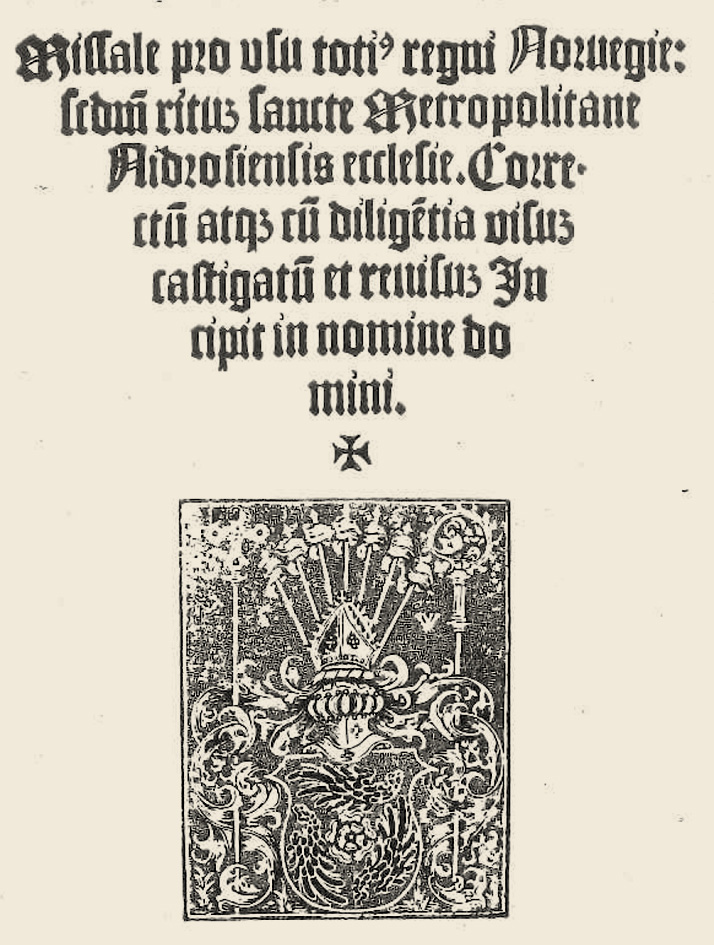 Missale pro vsu totiꝰ regni Noruegie:
ſcdm̄ rituʒ ſancte Metropolitane
Nidroſienſis eccleſie. Corre-
ctū atqʒ cū diligētia viſuʒ
caſtigatū et reuiſuʒ In
cipit in nomine do
mini.